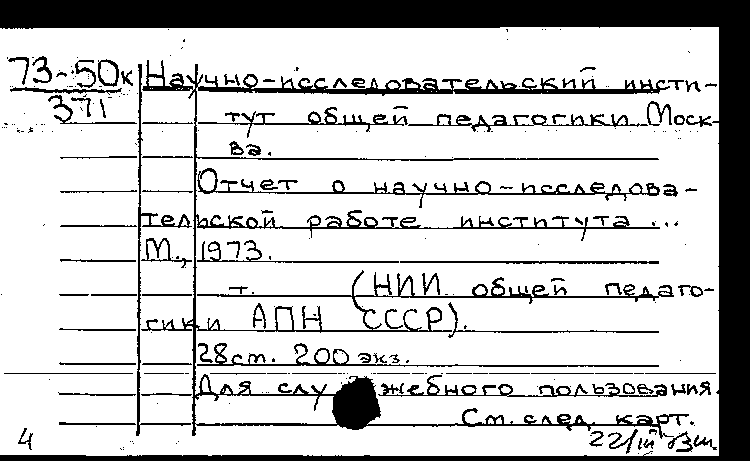 73-50к Научно-исследовательский инсти-
371
тут общей педагогики Моск-
ва.
Отчет о научно-исследова-
тельской работе института ...
М., 1973.
т. (НИИ общей педаго-
гики АПН СССР).
28см. 200 экз.
Для служебного пользования.
См. след. карт.
4